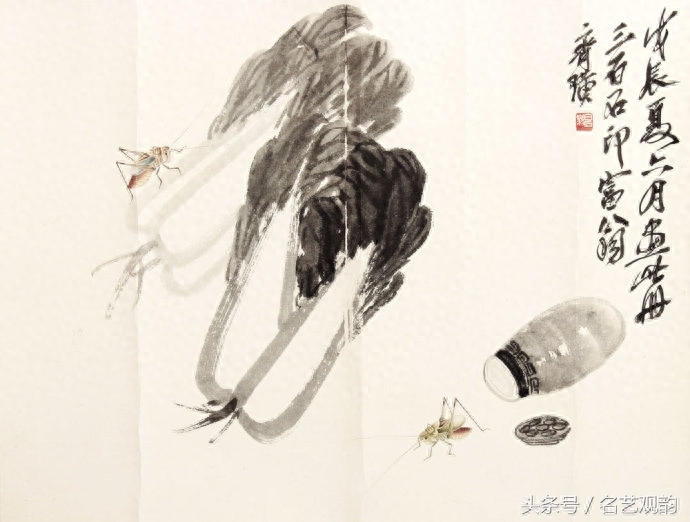 戊辰夏六月画此册
三百石印富翁
齐璜
头条号 / 名艺观韵